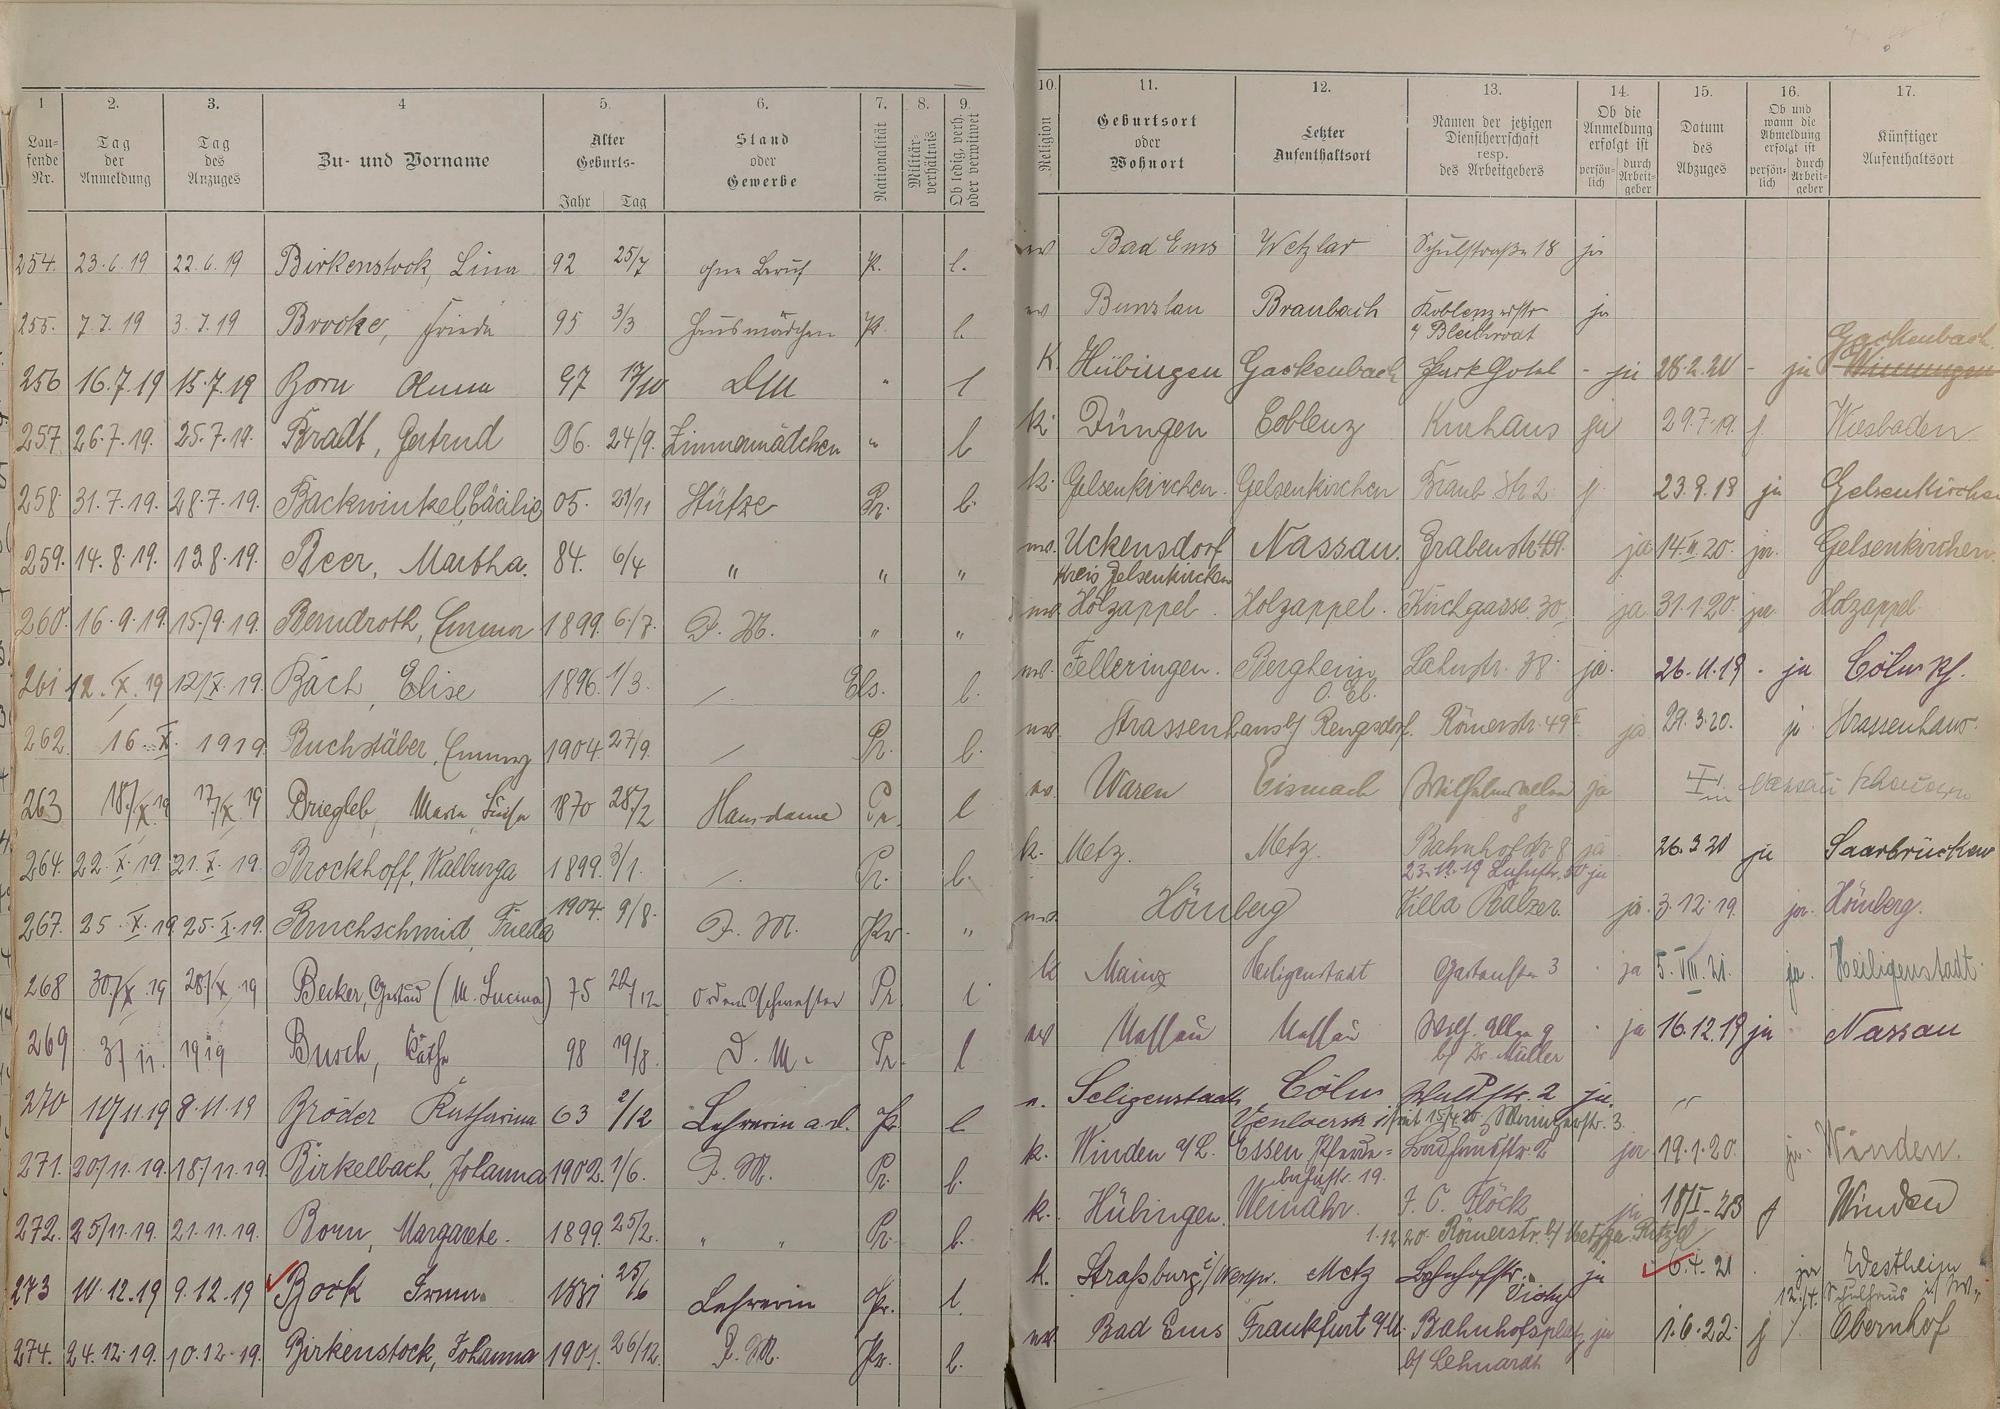 1 2. 3. 4 5. 6. 7. 8. 9. 10. 11. 12. 13. 14. 15. 16. 17.
Lau-fende Nr. Tag der Anmeldung Tag des Anzuges Zu- und Vorname Alter Geburts- Jahr Tag Stand oder Gewerbe Nationalität Militär-verhältnis Ob ledig, verh. oder verwitwet Religion Geburtsort oder Wohnort Letzter Aufenthaltsort Namen der jetzigen Dienstherrschaft resp. des Arbeitgebers Ob die Anmeldung erfolgt ist persön-lich durch Arbeit-geber Datum des Abzuges Ob und wann die Abmeldung erfolgt ist persön-lich durch Arbeit-geber Künftiger Aufenthaltsort
254. 23.6.19 22.6.19 Birkenstock, Lina 92 25/7 ohne Beruf Pr. l. ev Bad Ems Wetzlar Schulstraße 18 ja
255. 7.7.19 3.7.19 Brocke, Frieda 95 3/3 Hausmädchen Pr. l. ev Bunzlau Braubach Koblenzerstr ja
Gackenbach
256 16.7.19 15.7.19 Born Anna 97 17/10 DM " l K. Hübingen Gackenbach Park Hotel - ja 28.2.20 - ja Winningen
257 26.7.19. 25.7.19. Bradt, Gertrud 96. 24/9. Zimmermädchen " l k. Düngen Coblenz Kurhaus ja 29.7.19. j. Wiesbaden
258 31.7.19. 28.7.19. Backwinkel, Cäcilie 05. 23/11 Stütze Pr. l. k. Gelsenkirchen. Gelsenkirchen Braub. Str 2. j. 23.9.19 ja Gelsenkirchen
259. 14.8.19. 13.8.19. Beer, Martha. 84. 6/4 " " " ev. Uckensdorf Nassau. Grabenstr. 49. ja 14.II.20. ja. Gelsenkirchen.
Kreis Gelsenkirchen
260. 16.9.19. 15/9.19. Bendroth, Emma 1899. 6/7. D. M. " " ev. Holzappel. Holzappel. Kirchgasse 30 ja 31.1.20. ja Holzappel
261 12.X.19 12/X.19. Bäch, Elise 1896. 1/3. / Els. l. ev. Felleringen. Bergheim Lahnstr. 38. ja. 26.11.19 - ja Cöln Rh.
O. El.
262. 16.X.1919 Buchstäber, Emmy 1904. 27/9. / Pr. l. ev. Strassenhaus b/ Rengsdorf. Römerstr. 49 II ja 29.3.20. ja Strassenhaus.
263 18./X.19 17./X.19 Driegleb, Maria Luise 1870 28./2 Hausdame Pr. l ev. Waren Eismach Wilhelmsallee ja
8
264. 22.X.19. 21.X.19. Brockhoff, Walburga 1899. 3/1. / Pr. l. k. Metz. Metz. Bahnhofstr. 8 ja 26.3.20 ja Saarbrücken
23.12.19 Lahnstr. 50 ja
267. 25.X.19 25.X.19. Bruchschmid, Frieda 1904. 9/8. D. M. Pr. " ev. Hömberg Villa Balzer. ja. 3.12.19. ja. Hömberg.
268 30./X.19 28./X.19 Becker, (M. Lucina) 75 22/12 Ordensschwester Pr l k Mainz Heiligenstadt Gartenstr 3 . ja 5.VIII.21. ja. Heiligenstadt
269 3/11. 1919 Busch, Käthe 98 19/8. D. M. Pr. l ev Nassau Nassau Wilh. Allee 9 . ja 16.12.19 ja Nassau
b/ Dr. Müller
270 10/11.19 8.11.19 Bröder Katharina 63 2/12 Lehrerin a.d. Pr. l Seligenstadt Cöln Waldstr. 2 ja. "
271. 20/11.19. 18/11.19. Birkelbach, Johanna 1902. 1/6. D. M. Pr. l. k. Winden a/L. Essen ja 19.1.20. ja. Winden.
272. 25/11.19. 21.11.19. Born, Margarete. 1899. 25/2. " " Pr. l. k. Hübingen. Weinähr. J. C. Flöck ja 18/I-23 j Winden
1.12.20. Römerstr. b/ Metzger
273 10.12.19 9.12.19 Bock Irma 1881 25/6 Lehrerin Pr. l. k. Straßburg i/ Westpr. Metz Bahnhofstr. ja 6.4.21 . ja Westheim
12./4. Schulhaus i/ W.
274. 24.12.19. 10.12.19. Birkenstock, Johanna 1901. 26/12. D. M. Pr. l. ev. Bad Ems Frankfurt a/M. Bahnhofsplatz, ja 1.6.22. j /. Obernhof
b/ Lehnardt